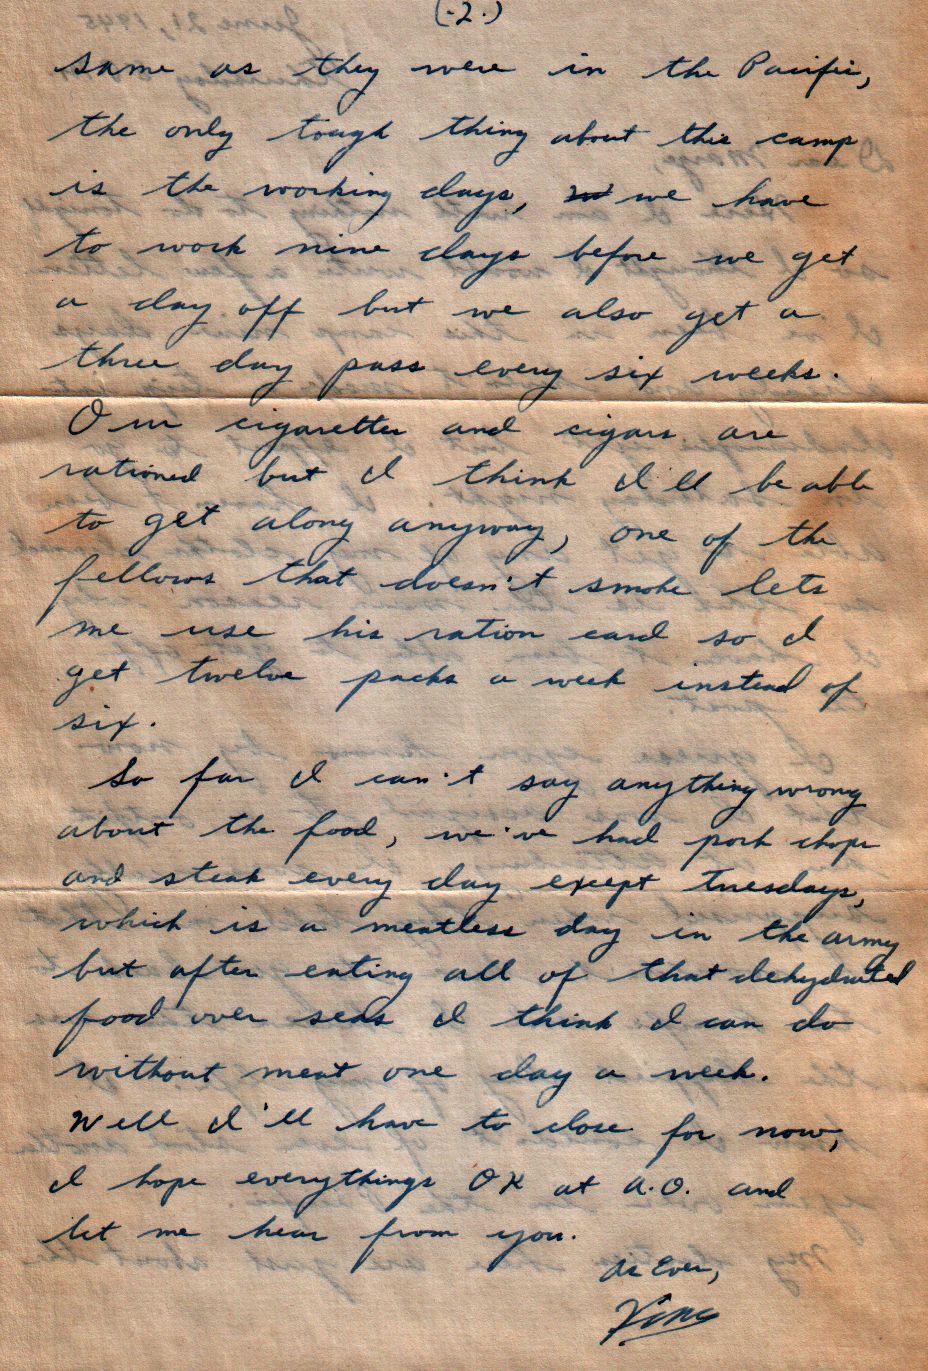 (-2.)
same as they were in the Pacific,
the only tough thing about this camp
is the working days, we have
to work nine days before we get
a day off but we also get a
three day pass every six weeks.
Our cigarettes and cigars are
rationed but I think I'll be able
to get along anyway, one of the
fellows that doesn't smoke lets
me use his ration card so I
get twelve packs a week instead of
six.
So far I can't say anything wrong
about the food, we've had pork chops
and steak every day except Tuesdays,
which is a meatless day in the army
but after eating all of that dehydrated
food over seas I think I can do
without meat one day a week.
Well I'll have to close for now,
I hope everythings OK at A.O. and
let me hear from you.
As Ever,